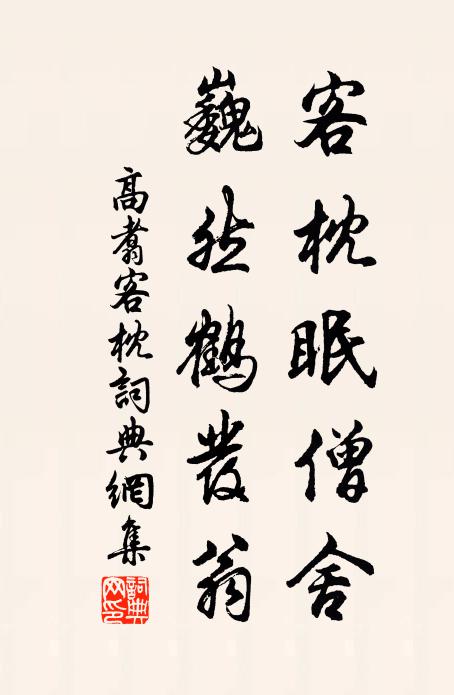 客枕眠僧舍
巍然鶴發翁
高翥客枕詞典網集
詞典
网印